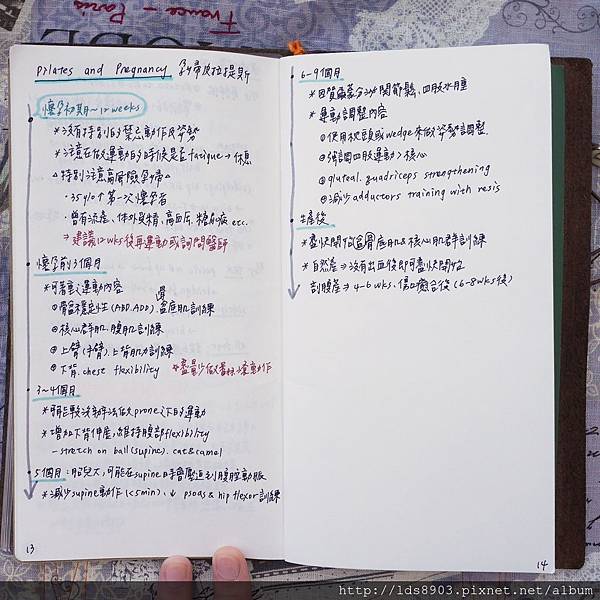 France - Paris
Pilates and Pregnancy 孕婦彼拉提斯
懷孕初期~12 weeks
*沒有特別的禁忌動作及姿勢
*注意在做運動的時候是否 fatigue → 休息
△特別注意高危險孕婦
・35 y/o↑ 第一次懷孕者
・曾有流產、體外受精、高血压、糖尿病 etc.
⇒建議12wks後再運動或詢問醫師
懷孕前3個月
*可著重之運動內容
①骨盆穩定性(ABD.ADD).骨盆底肌訓練
②核心群肌.腹肌訓練
③上臂(手臂).上背肌力訓練
④下背.chest flexibility *盡量少做 動作
3~4個月
*可能較沒辦法做prone之下的運動
*增加下背伸展,維持腹部flexibility
-stretch on ball(supine). cat&camel
5個月:胎兒大,可能在supine時會壓迫到腹腔動脈
*減少supine動作(<5min)、↓ psoas & hip flexor訓練
13
6-9個月
*因賀爾蒙分泌關節鬆、四肢水腫
*運動調整內容
①使用枕頭或wedge來做姿勢調整
②強調四肢運動>核心
③gluteal. quadriceps strengthening
④減少adductors training with resis
生產後
*盡快開始骨盆底肌&核心肌群訓練
*自然產⇒沒有出血後即可盡快開始
剖腹產⇒4-6 wks、傷口癒合後(6-8wks後)
14
http://lds8903.pixnet.net/album